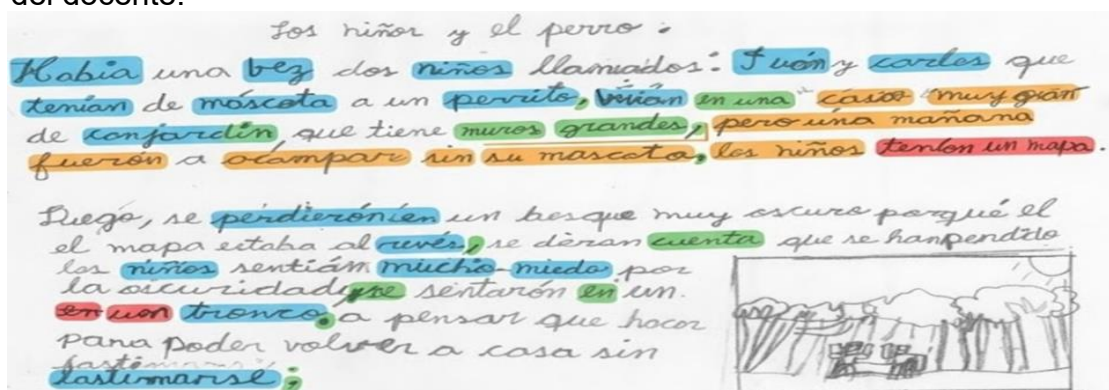 del docente.
Los niños y el perro :
Había una bez dos niños llamados: Juán y carlos que
tenían de máscota a un perrito, vivián en una casa muy gran
de conjardín, que tiene muros grandes, pero una mañana
fuerón a acampar sin su mascota, los niños tenían un mapa.
Luego, se perdierónien un bosque muy oscuro porqué el
el mapa estaba al revés, se dieran cuenta que se hanpendido
los niños sentián mucho miedo por
la oscuridad y se sentarón en un.
en uon tronco. a pensar que hacor
para poder volver a casa sin
lastimarise;